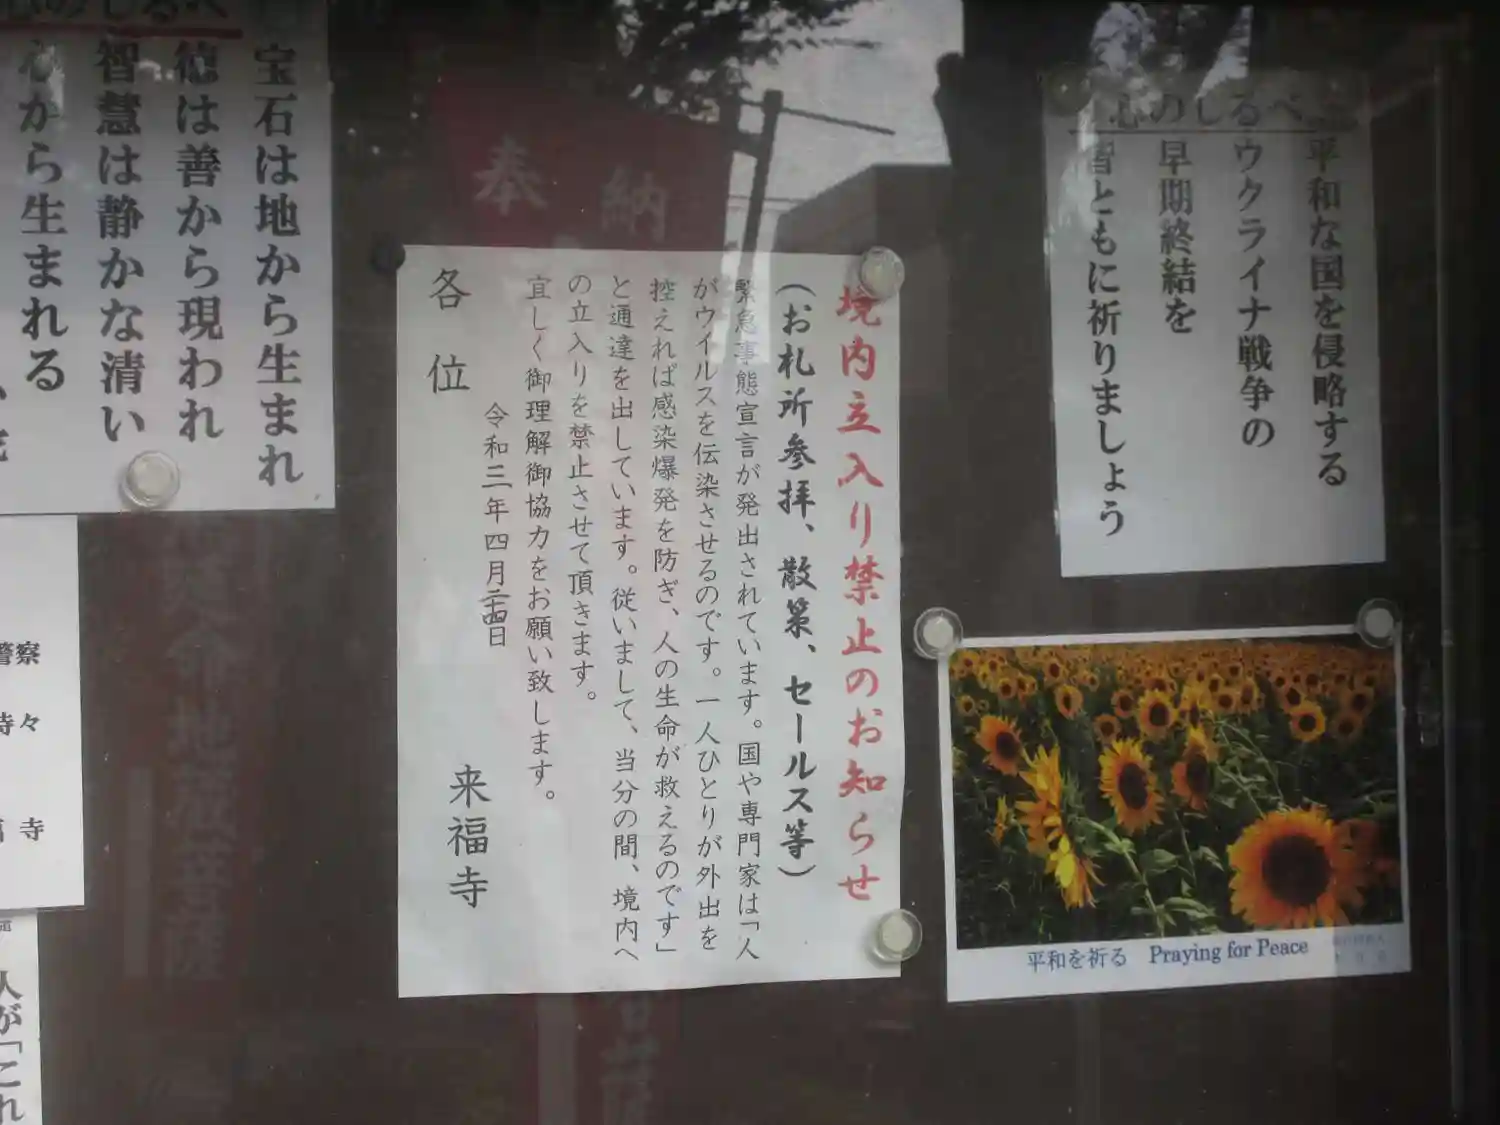 心のしるべ
平和な国を侵略する
ウクライナ戦争の
早期終結を
皆ともに祈りましょう
平和を祈る Praying for Peace
境内立入り禁止のお知らせ
(お札所参拝、散策、セールス等)
緊急事態宣言が発出されています。国や専門家は「人
がウイルスを伝染させるのです。一人ひとりが外出を
控えれば感染爆発を防ぎ、人の生命が救えるのです」
と通達を出しています。従いまして、当分の間、境内へ
の立入りを禁止させて頂きます。
宜しく御理解御協力をお願い致します。
令和三年四月二十四日
来福寺
各位
奉納
心のしるべ
宝石は地から生まれ
徳は善から現われ
智慧は静かな清い
心から生まれる
警察
時々
寺
人が「これ
延命地蔵菩薩